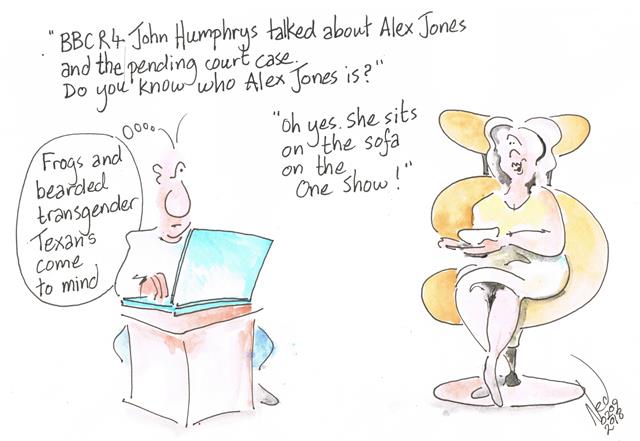 "BBC R4 John Humphrys talked about Alex Jones
and the pending court case.
Do you know who Alex Jones is?"
"Oh yes. She sits
on the sofa
on the
One Show!"
Frogs and
bearded
transgender
Texan's
come
to mind
2018